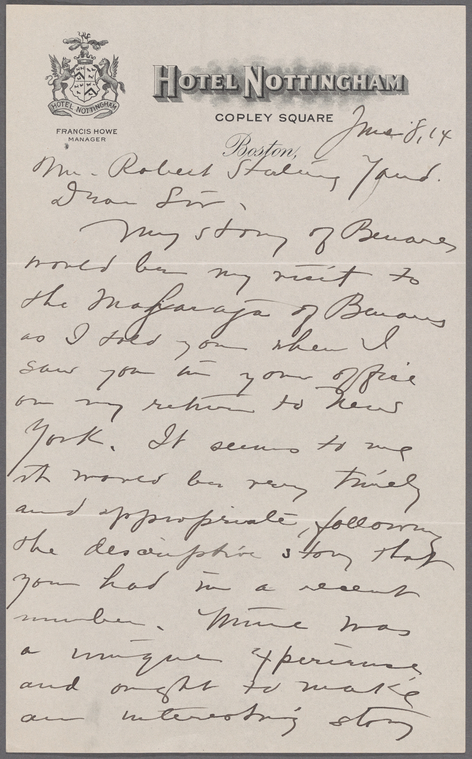 HOTEL NOTTINGHAM
HOTEL NOTTINGHAM
FRANCIS HOWE
MANAGER
COPLEY SQUARE
Boston, June 8, 14
Mr. Robert Sterling Yard.
Dear Sir,
My story of Benares
would be my visit to
the Maharaja of Benares
as I told you when I
saw you in your office
on my return to New
York. It seems to me
it would be very timely
and appropriate, following
the descriptive story that
you had in a recent
number. Mine was
a unique experience
and ought to make
an interesting story